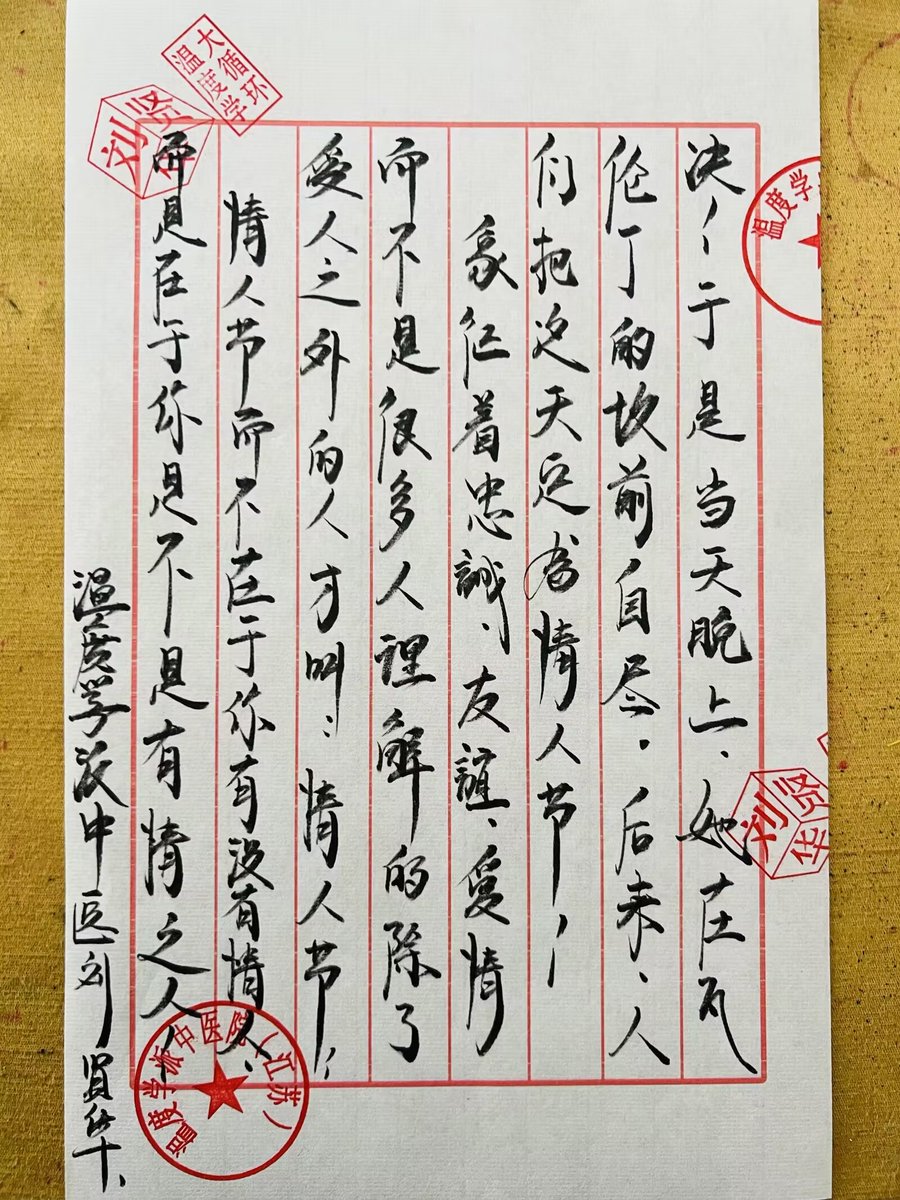 决，于是当天晚上、她在瓦
伦丁的坟前自尽．后来、人
们把这天定为情人节！
象征着忠誠、友誼、爱情
而不是很多人理解的除了
爱人之外的人才叫：情人节！
情人节而不在于你有没有情人、
而是在于你是不是有情之人！
温度学派中医刘贤华、
大循环
温度学
刘贤华
温度学
刘贤华
温度学派中医院（江苏）